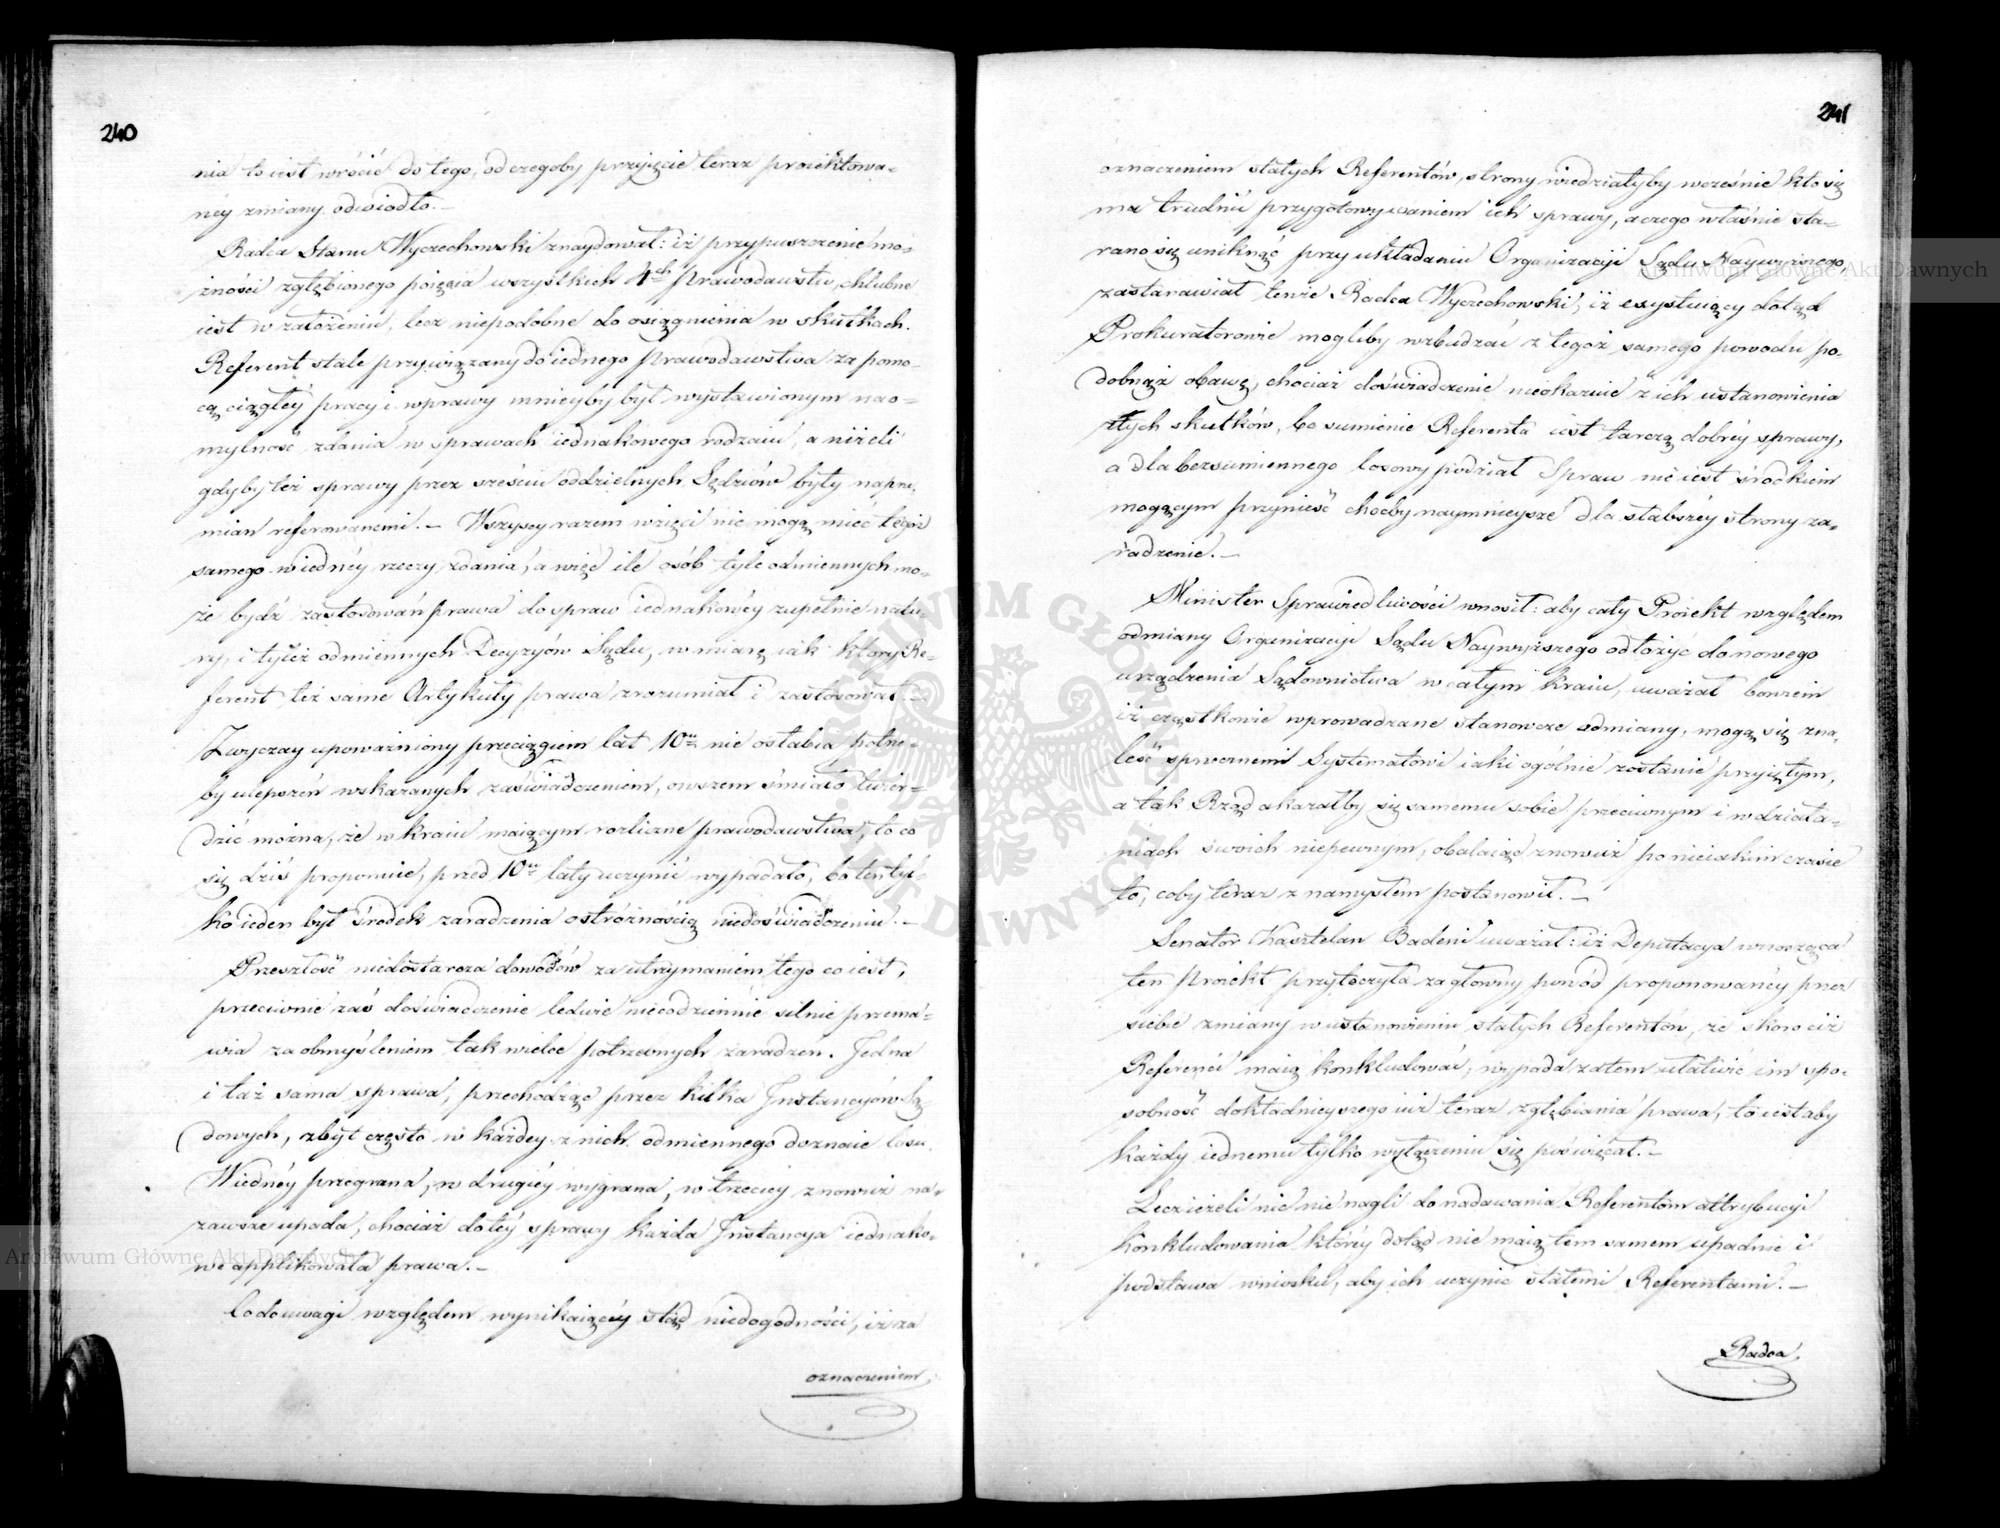 240
nia to iest wrócić do tego, od czegoby przyięcie teraz proiektowa-
néy zmiany odwiodło.—
Radca Stanu Wyczechowski znaydował: iż przypuszczenie mo-
żności zgłębionego poięcia wszystkich 4ch prawodawstw, chlubne
iest w założeniu, lecz niepodobne do osiągnienia w skutkach.
Referent stale przywiązany do iednego prawodawstwa za pomo-
cą ciągłéy pracy i wprawy mnieyby był wystawionym na o-
mylność zdania w sprawach iednakowego rodzaiu, a niżeli
gdyby też sprawy przez sześciu oddzielnych Sędziów były naprze-
mian referowanemi.— Wszyscy razem wzięci nie mogą mieć tegoż
samego w iednéy rzeczy zdania, a więc ile osób tyle odmiennych mo-
że bydź zastosowań prawa do spraw iednakowéy zupełnie natu-
ry, i tyleż odmiennych Decyzyów Sądu, w miarę iak który Re-
ferent też same Artykuły prawa zrozumiał i zastosował.—
Zwyczay upoważniony przeciągiem lat 10u nie osłabia potrze-
by ulepszeń wskazanych zaświadczeniem, owszem śmiało twier-
dzić można, że w kraiu maiącym rozliczne prawodawstwa, to co
się dziś proponuie, przed 10u laty uczynić wypadało, bo ten tyl-
ko ieden był środek zaradzenia ostróżnością niedoświadczeniu.—
Przeszłość niedostarcza dowodów za utrzymaniem tego co iest,
przeciwnie zaś doświadczenie ledwie niecodziennie silnie przema-
wia za obmyśleniem tak wielce potrzebnych zaradzeń. Jedna
i taż sama sprawa, przechodząc przez kilka Jnstancyów Są-
dowych, zbyt często w każdey z nich odmiennego doznaie losu.
W iednéy przegrana, w drugiéy wygrana, w trzeciey znowuż na-
zawsze upada, chociaż do téy sprawy każda Jnstancya iednako-
we applikowała prawa.—
Co do uwagi względem wynikaiącéy stąd niedogodności, iż za
oznaczeniem
241
oznaczeniem stałych Referentów, strony wiedziałyby wcześnie kto się
ma trudnić przygotowywaniem ich sprawy, a czego właśnie sta-
rano się uniknąć przy układaniu Organizacyi Sądu Naywyższego
zastanawiał tenże Radca Wyczechowski, iż exystuiący dotąd
Prokuratorowie mogliby wzbudzać z tegoż samego powodu po-
dobnąż obawę, chociaż doświadczenie nieokazuie z ich ustanowienia
złych skutków, bo sumienie Referenta iest tarczą dobréy sprawy,
a dla bezsumiennego losowy podział Spraw nie iest środkiem
mogącym przynieść choćby naymnieysze dla słabszéy strony za-
radzenie.—
Minister Sprawiedliwości wnosił: aby cały Proiekt względem
odmiany Organizacyi Sądu Naywyższego odłożyć do nowego
urządzenia Sądownictwa w całym kraiu, uważał bowiem
iż cząstkowie wprowadzane stanowcze odmiany, mogą się zna-
leść sprzecznemi Systematowi iaki ogólnie zostanie przyiętym,
a tak Rząd okazałby się samemu sobie przeciwnym i w działa-
niach swoich niepewnym, obalaiąc znowuż po nieiakim czasie
to, coby teraz z namysłem postanowił.—
Senator Kasztelan Badeni uważał: iż Deputacya wnosząca
ten Proiekt przytoczyła za główny powód proponowanéy przez
siebie zmiany w ustanowieniu stałych Referentów, że skoro ciż
Referenci maią konkludować, wypada zatem ułatwić im spo-
sobność dokładnieyszego iuż teraz zgłębiania prawa, to iest aby
każdy iednemu tylko wyłączeniu się poświęcał.—
Lecz ieżeli nic nie nagli do nadawania Referentom attrybucyi
konkludowania, któréy dotąd nie maią, tem samem upadnie i
podstawa wniosku, aby ich uczynić stałemi Referentami.—
Radca
Archiwum Główne Akt Dawnych
Archiwum Główne Akt Dawnych
ARCHIWUM GŁÓWNE AKT DAWNYCH